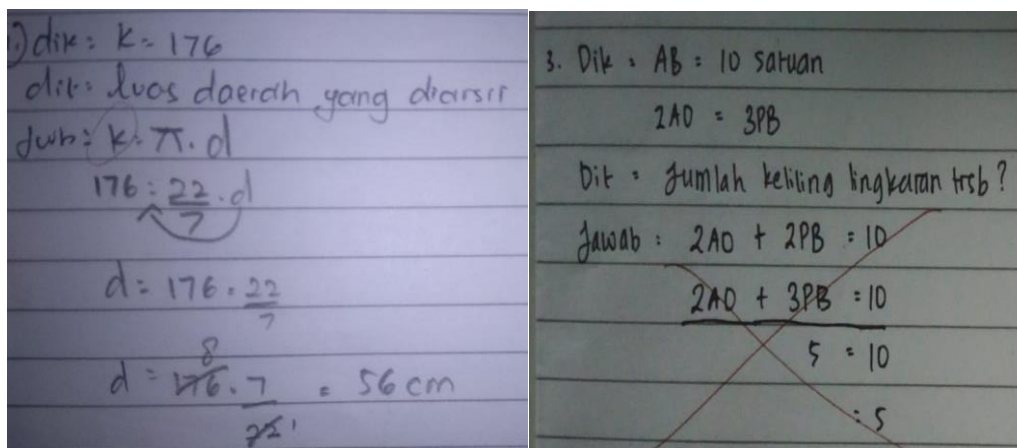 1.) dik: K = 176
dit: luas daerah yang diarsir
Jwb: K = π . d
176 = 22/7 . d
d = 176 : 22/7
d = 176 . 7/22 = 56 cm
8
1
3. Dik : AB = 10 satuan
2AO = 3PB
Dit : Jumlah keliling lingkaran trsb?
Jawab : 2AO + 2PB = 10
2AO + 3PB = 10
5 = 10
= 5